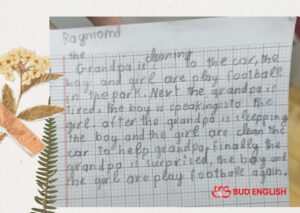 Raymond
the cleaning
Grandpa is to the car, the
boy and girl are play football
in the park. Next the grandpa is
tired. the boy is speaking to the
girl. after the grandpa is sleepping
the boy and the girl are clean the
car to help grandpa, finally the
grandpa is surprised, the boy and
the girl are play football again.
BUD ENGLISH